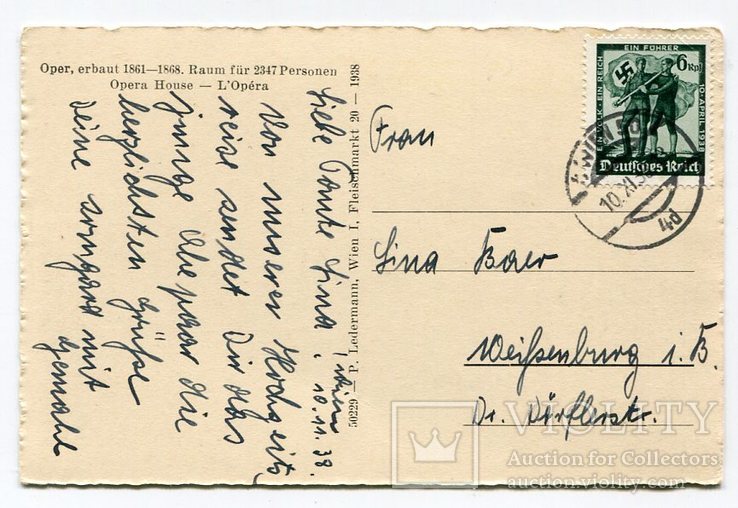 Oper, erbaut 1861—1868. Raum für 2347 Personen
Opera House — L'Opéra
Wien,
10.11.38.
Liebe Tante Lina!
Von unserer Hochzeits
reise sendet Dir das
junge Ehepaar die
herzlichsten Grüße
Deine Irmgard mit
Gemahl
50229 — P. Ledermann, Wien I, Fleischmarkt 20 — 1938
EIN VOLK · EIN REICH
EIN FÜHRER
10. APRIL 1938
6 Rpf
Deutsches Reich
WIEN
10.XI.38
4d
Frau
Lina Baer
Weißenburg i. B.
Dr. Dörflerstr.
VIOLITY
Auction for Collectors
auction.violity.com